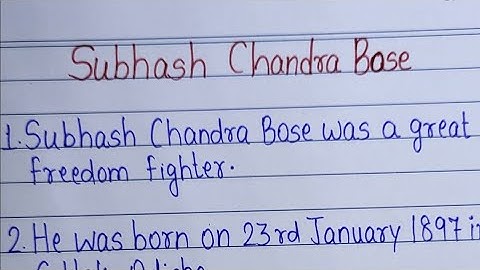 Subhash Chandra Bose
1. Subhash Chandra Bose was a great
freedom fighter.
2. He was born on 23rd January 1897 i